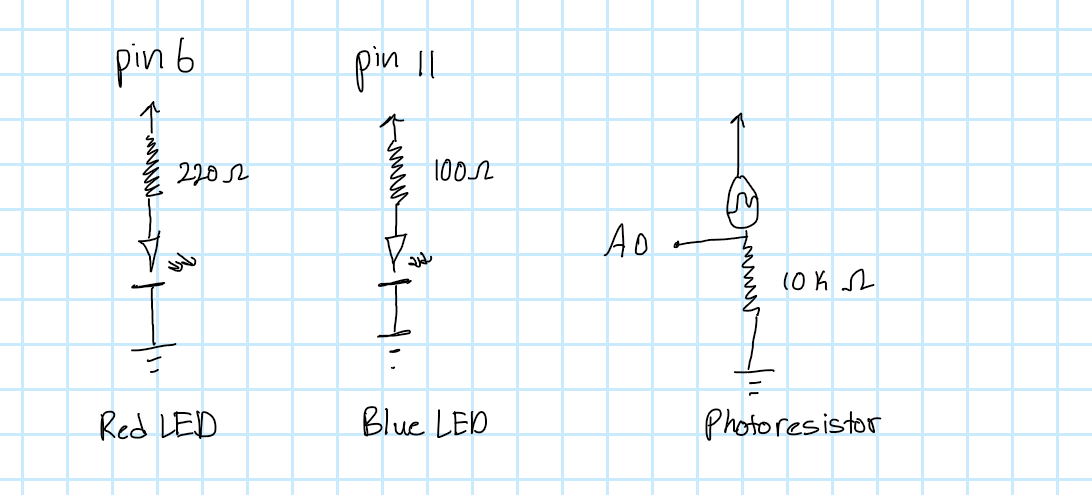 pin 6
220Ω
Red LED
pin 11
100Ω
Blue LED
A0
10KΩ
Photoresistor